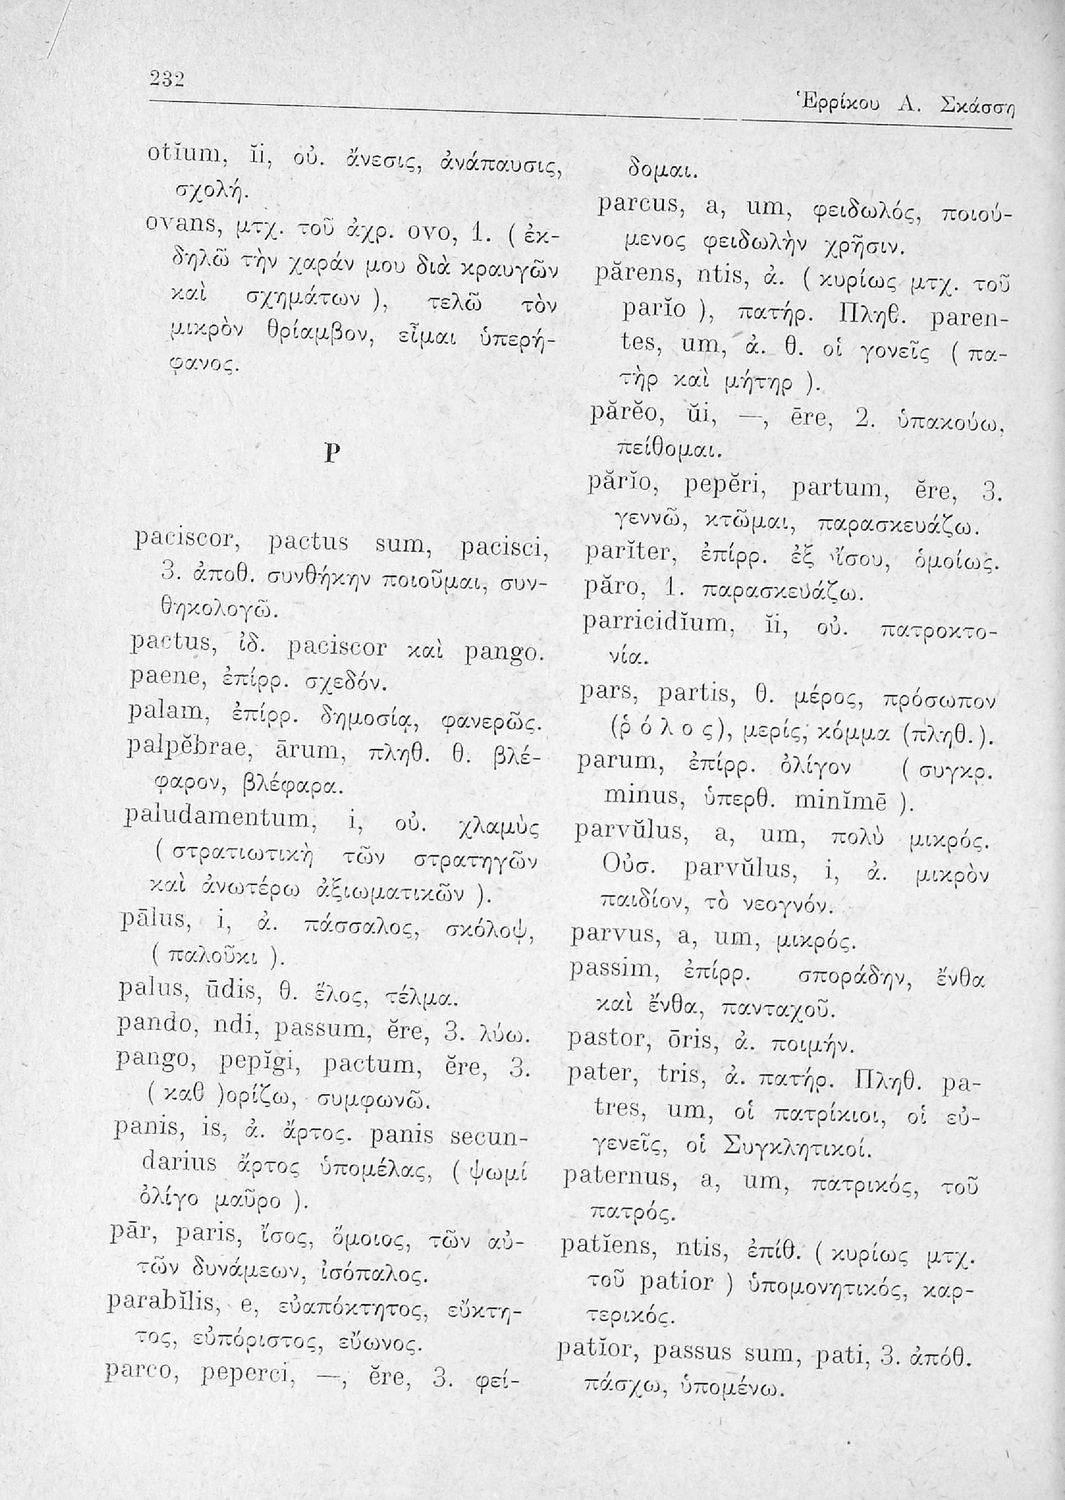 232
Ἑρρίκου Α. Σκάσση
otĭum, ĭi, οὐ. ἄνεσις, ἀνάπαυσις,
σχολή.
ovans, μτχ. τοῦ ἀχρ. ovo, 1. ( ἐκ-
δηλῶ τὴν χαράν μου διὰ κραυγῶν
καὶ σχημάτων ), τελῶ τὸν
μικρὸν θρίαμβον, εἶμαι ὑπερή-
φανος.
P
paciscor, pactus sum, pacisci,
3. ἀποθ. συνθήκην ποιοῦμαι, συν-
θηκολογῶ.
pactus, ἰδ. paciscor καὶ pango.
paene, ἐπίρρ. σχεδόν.
palam, ἐπίρρ. δημοσίᾳ, φανερῶς.
palpĕbrae, ārum, πληθ. θ. βλέ-
φαρον, βλέφαρα.
paludamentum, i, οὐ. χλαμὺς
( στρατιωτικὴ τῶν στρατηγῶν
καὶ ἀνωτέρω ἀξιωματικῶν ).
pālus, i, ἀ. πάσσαλος, σκόλοψ,
( παλοῦκι ).
palus, ūdis, θ. ἕλος, τέλμα.
pando, ndi, passum, ĕre, 3. λύω.
pango, pepĭgi, pactum, ĕre, 3.
( καθ )ορίζω, συμφωνῶ.
panis, is, ἀ. ἄρτος. panis secun-
darius ἄρτος ὑπομέλας, ( ψωμί
ὀλίγο μαῦρο ).
pār, paris, ἴσος, ὅμοιος, τῶν αὐ-
τῶν δυνάμεων, ἰσόπαλος.
parabĭlis, e, εὐαπόκτητος, εὔκτη-
τος, εὐπόριστος, εὔωνος.
parco, peperci, —, ĕre, 3. φεί-
δομαι.
parcus, a, um, φειδωλός, ποιού-
μενος φειδωλὴν χρῆσιν.
părens, ntis, ἀ. ( κυρίως μτχ. τοῦ
parĭo ), πατήρ. Πληθ. paren-
tes, um, ἀ. θ. οἱ γονεῖς ( πα-
τὴρ καὶ μήτηρ ).
părĕo, ŭi, —, ēre, 2. ὑπακούω,
πείθομαι.
părĭo, pepĕri, partum, ĕre, 3.
γεννῶ, κτῶμαι, παρασκευάζω.
parĭter, ἐπίρρ. ἐξ ἴσου, ὁμοίως.
păro, 1. παρασκευάζω.
parricidĭum, ĭi, οὐ. πατροκτο-
νία.
pars, partis, θ. μέρος, πρόσωπον
(ῥόλος), μερίς, κόμμα (πληθ.).
parum, ἐπίρρ. ὀλίγον ( συγκρ.
minus, ὑπερθ. minĭmē ).
parvŭlus, a, um, πολὺ μικρός.
Οὐσ. parvŭlus, i, ἀ. μικρὸν
παιδίον, τὸ νεογνόν.
parvus, a, um, μικρός.
passim, ἐπίρρ. σποράδην, ἔνθα
καὶ ἔνθα, πανταχοῦ.
pastor, ōris, ἀ. ποιμήν.
pater, tris, ἀ. πατήρ. Πληθ. pa-
tres, um, οἱ πατρίκιοι, οἱ εὐ-
γενεῖς, οἱ Συγκλητικοί.
paternus, a, um, πατρικός, τοῦ
πατρός.
patĭens, ntis, ἐπίθ. ( κυρίως μτχ.
τοῦ patior ) ὑπομονητικός, καρ-
τερικός.
patĭor, passus sum, pati, 3. ἀπόθ.
πάσχω, ὑπομένω.